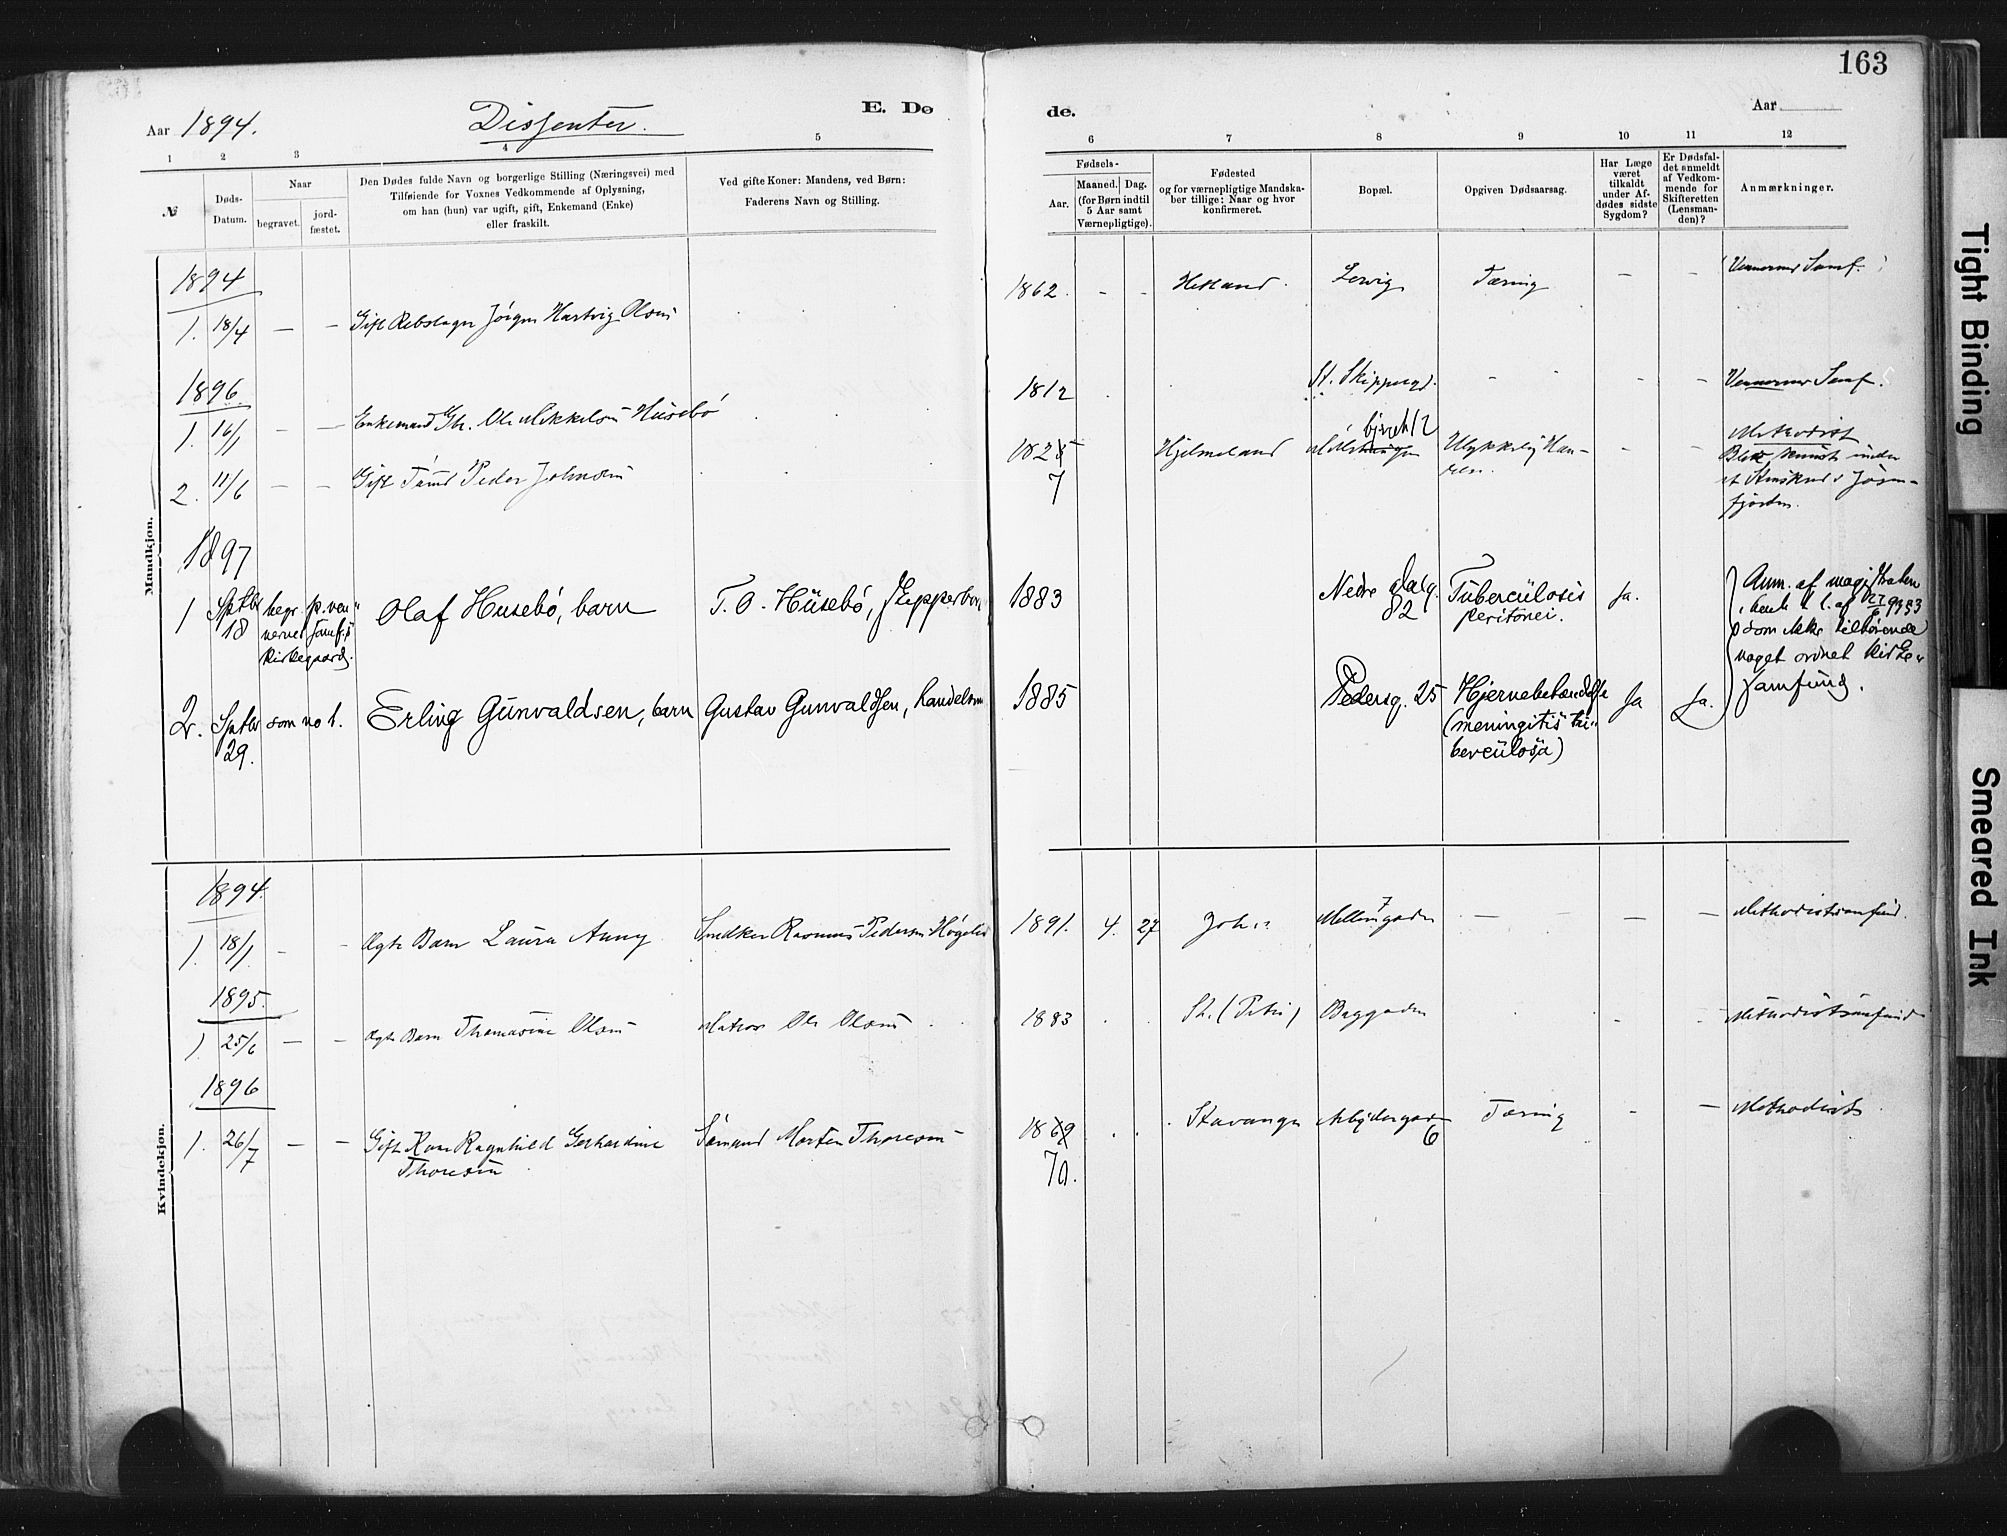 163
Aar 1894.
Dissenter.
E. Dø
de.
Aar
1 2 3 4 5 6 7 8 9 10 11 12
№
Døds-
Datum.
Naar
begravet.
jord-
fæstet.
Den Dødes fulde Navn og borgerlige Stilling (Næringsvei) med
Tilføiende for Voxnes Vedkommende af Oplysning,
om han (hun) var ugift, gift, Enkemand (Enke)
eller fraskilt.
Ved gifte Koner: Mandens, ved Børn:
Faderens Navn og Stilling.
Fødsels-
Aar.
Maaned. Dag.
(for Børn indtil
5 Aar samt
Værnepligtige).
Fødested
og for værnepligtige Mandska-
ber tillige: Naar og hvor
konfirmeret.
Bopæl.
Opgiven Dødsaarsag.
Har Læge
været
tilkaldt
under Af-
dødes sidste
Sygdom?
Er Dødsfal-
det anmeldt
af Vedkom-
mende for
Skifteretten
(Lensman-
den)?
Anmærkninger.
Mandkjøn.
1894
1. 18/4 — — Gift Rebslager Jørgen Hartvig Olsen
1862. - - Hetland. Lervig Tæring — — Samf.
1896.
1. 16/1 — — Enkemand Ole Mikkelsen Husebø
1812 St. Skipperg. — — — Samf.
2. 11/6 — — Gift Peder Johnsen
1825 7 Hjelmeland Ulykkelig Hæn-
delse. — — Methodist
under
et i Jøsen-
fjorden.
1897
1 Sptbr 18 begr. p. ven-
nernes samf.s
kirkegaard.
Olaf Husebø, barn
T. O. Husebø,
1883
Nedre Dalg.
82
Tuberculosis
peritonei.
Ja.
Anm. af magistraten
som ikke tilhørende
noget ordnet kirke-
samfund.
2. Sptbr 29. som no 1. Erling Gunvaldsen, barn
Gustav Gunvaldsen, handelsm
1885
Pedersg. 25
Hjernebetændelse
(meningitis tu-
berculosa)
Ja Ja.
Kvindekjøn.
1894.
1. 18/1 - - Ægte Barn Laura Anny
Snedker Rasmus Pedersen Høgelid
1891. 4. 27 Joh. Møllergaden 7 — — — Methodistsamfund.
1895.
1. 25/6 — — Ægte Barn Thomasine Olsen
Matros Ole Olsen
1883 St. (Petri) Baggaden - - Methodistsamfund
1896
1. 26/7 — — Gift Kone Ragnhild Gerhardine
Thoresen
Sømand Morten Thoresen
1869
70.
Stavanger Arbeidergaden
6
Tæring — — Methodist.
Tight Binding
Smeared Ink